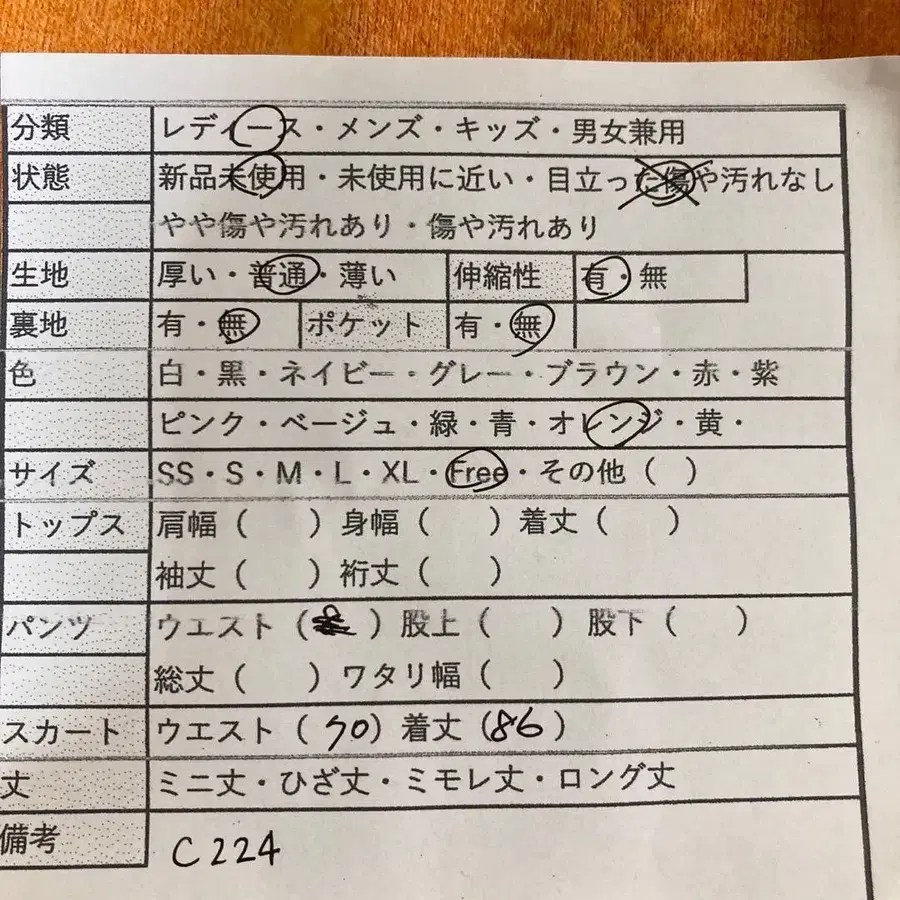 分類 レディース・メンズ・キッズ・男女兼用
状態 新品未使用・未使用に近い・目立った傷や汚れなし
やや傷や汚れあり・傷や汚れあり
生地 厚い・普通・薄い 伸縮性 有・無
裏地 有・無 ポケット 有・無
色 白・黒・ネイビー・グレー・ブラウン・赤・紫
ピンク・ベージュ・緑・青・オレンジ・黄・
サイズ SS・S・M・L・XL・Free・その他( )
トップス 肩幅( ) 身幅( ) 着丈( )
袖丈( ) 裄丈( )
パンツ ウエスト( ) 股上( ) 股下( )
総丈( ) ワタリ幅( )
スカート ウエスト(70) 着丈(86)
丈 ミニ丈・ひざ丈・ミモレ丈・ロング丈
備考 C224